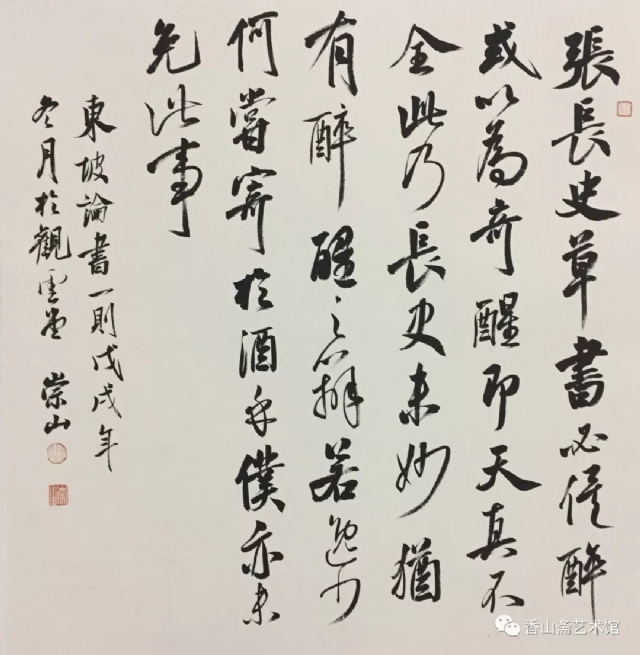 張長史草書必俟醉
或以為奇醒即天真不
全此乃長史未妙猶
有醉醒之辨若逸少
何嘗寄於酒乎僕亦未
免此事
東坡論書一則戊戌年
冬月於觀雲堂 崇山
香山斋艺术馆